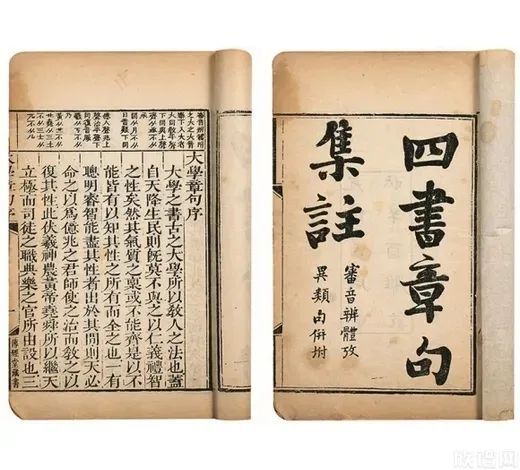 四書章句
集註
審音辨體攷
異類句併坿
大學章句序
大學之書古之大學所以教人之法也蓋
自天降生民則既莫不與之以仁義禮智
之性矣然其氣質之稟或不能齊是以不
能皆有以知其性之所有而全之也一有
聰明睿智能盡其性者出於其間則天必
命之以爲億兆之君師使之治而教之以
復其性此伏羲神農黃帝堯舜所以繼天
立極而司徒之職典樂之官所由設也三
大學章句序
一
傳經堂藏書
族谱网